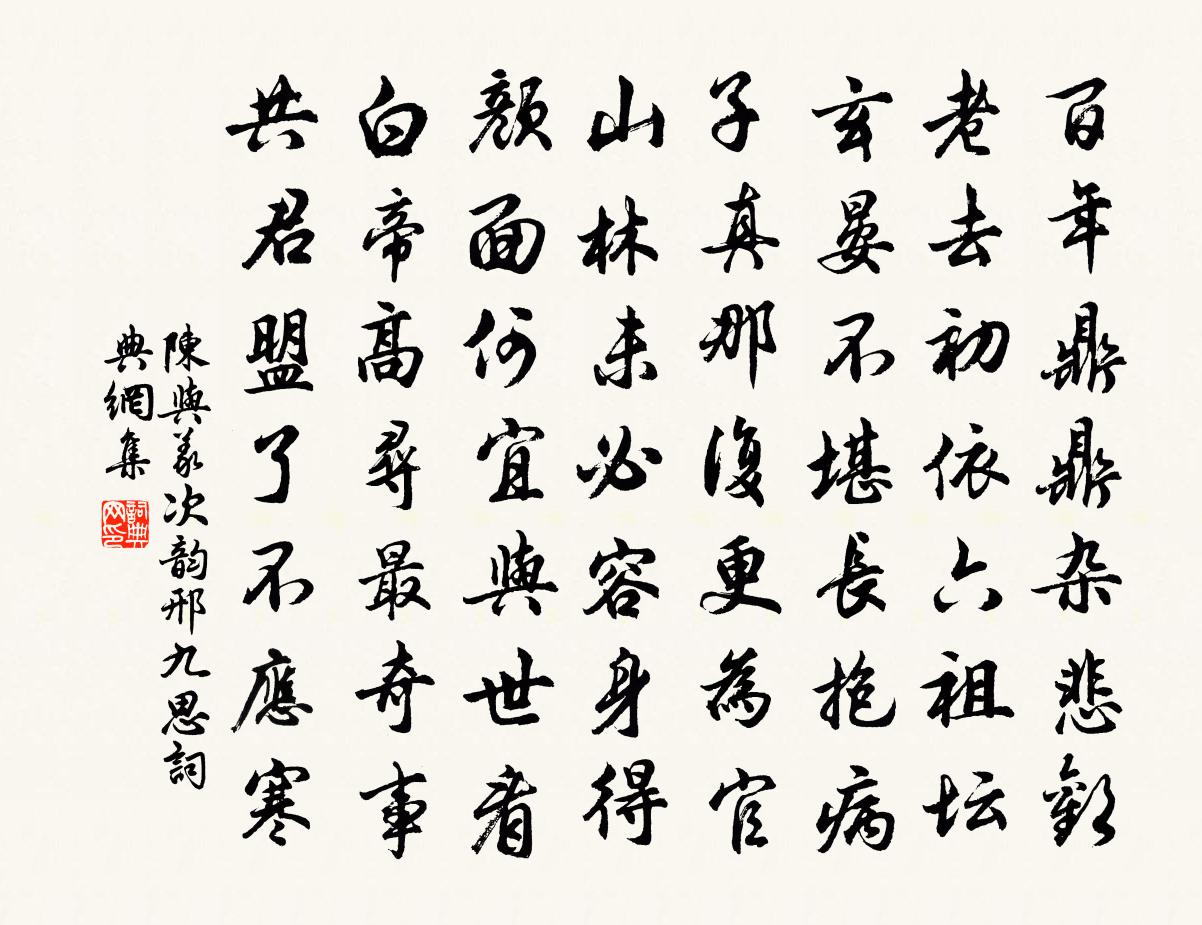 百年鼎鼎杂悲歡
老去初依六祖坛
玄晏不堪長抱病
子真那復更為官
山林未必容身得
顏面何宜與世看
白帝高尋最奇事
共君盟了不應寒
陳與義次韵邢九思詞
典網集
詞典网印